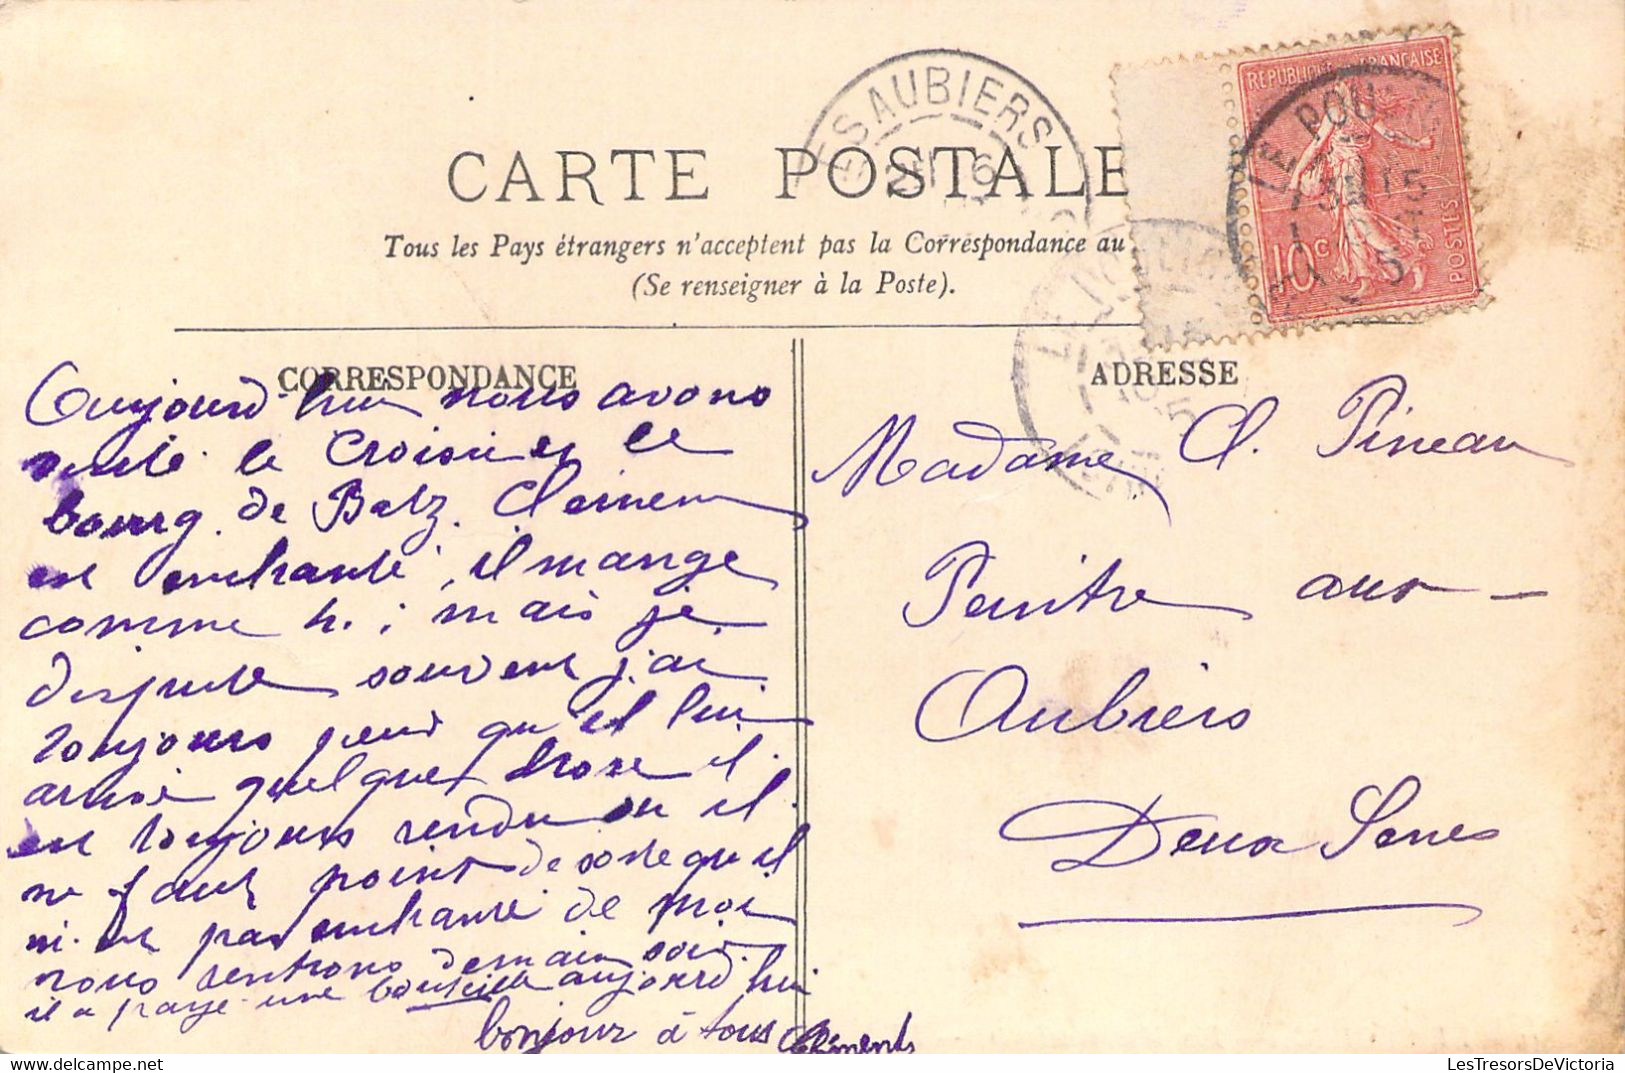 CARTE POSTALE
Tous les Pays étrangers n'acceptent pas la Correspondance au
(Se renseigner à la Poste).
LES AUBIERS
REPUBLIQUE FRANÇAISE
LE POU
10c
POSTES
CORRESPONDANCE
Aujourd'hui nous avons
visité le Croisic et le
bourg de Batz. Clemen
est enchanté, il mange
comme h. ; mais je
dispute souvent j'ai
toujours peur qu'il lui
arrive quelque chose il
est toujours rendu ou il
ne faut point de sorte qu'il
n'est pas enchanté de moi
nous rentrons demain soir.
il a payé une bouteille aujourd'hui
bonjour à tous Cléments
ADRESSE
Madame Cl. Pineau
Peintre aux-
Aubiers
Deux Sevres
LesTresorsDeVictoria